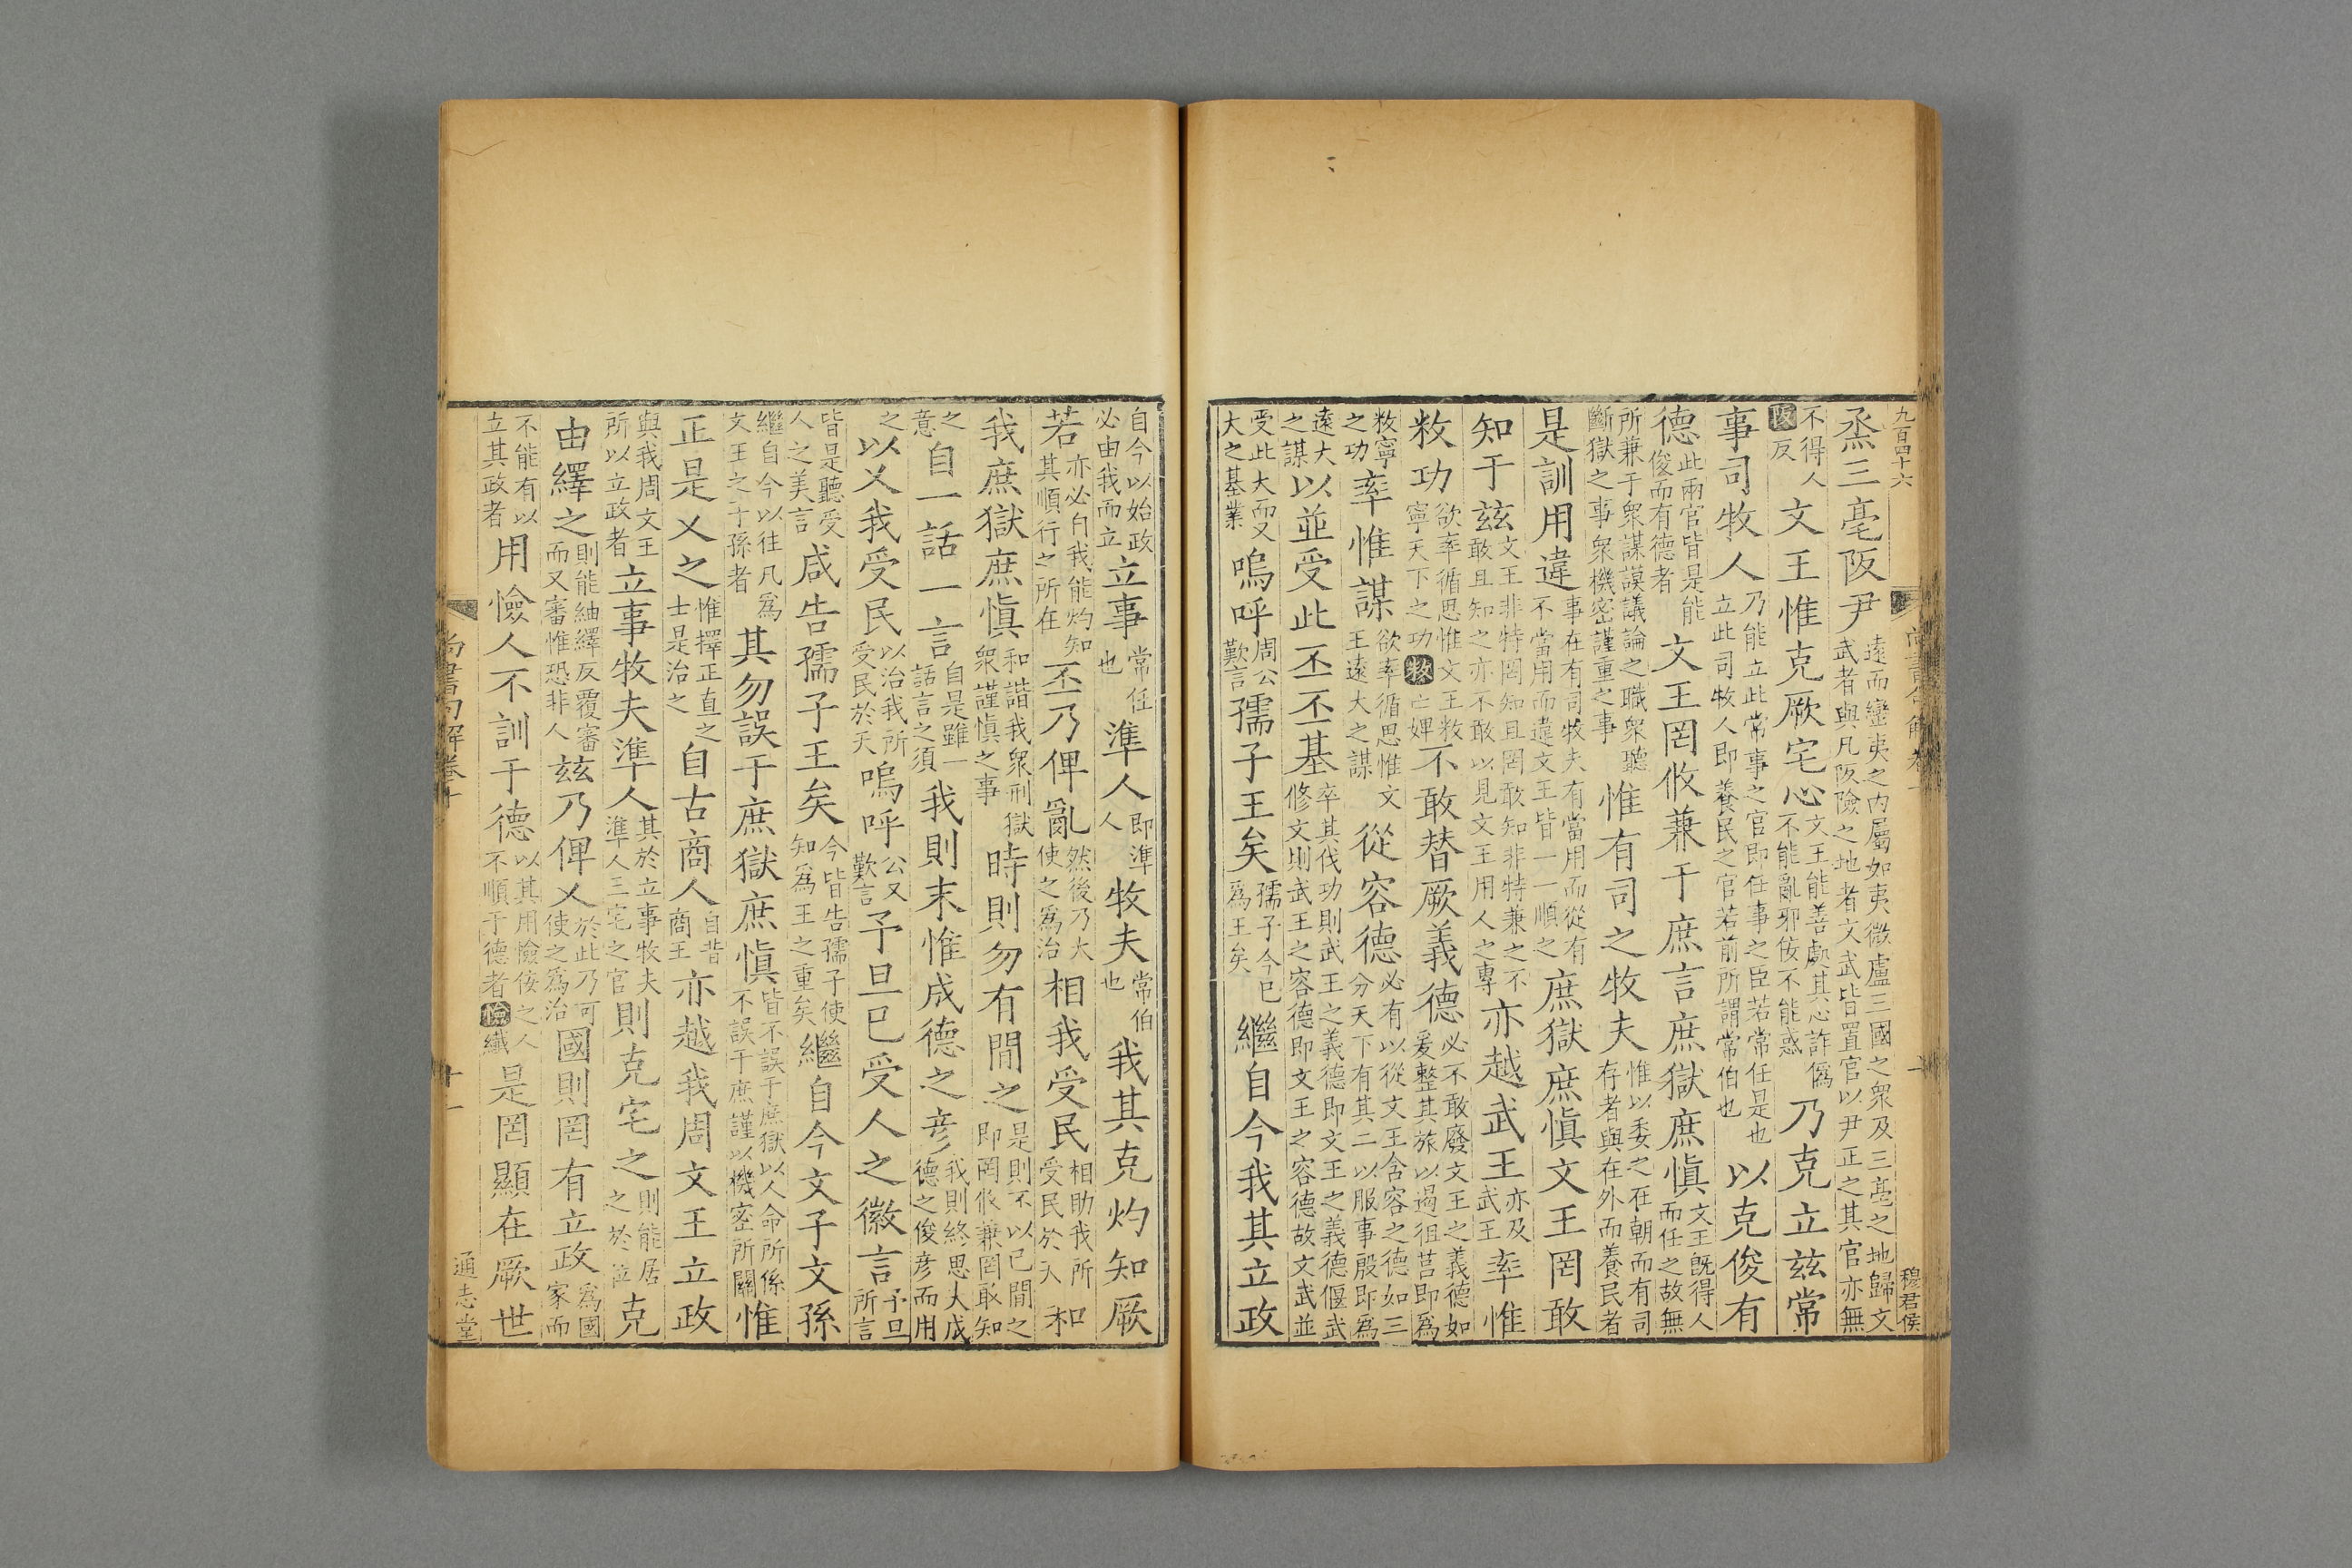 九百四十六 尚書句解卷十 穆君侯
烝三亳阪尹遠而蠻夷之内屬如夷微盧三國之衆及三亳之地歸文武者與凡阪險之地者文武皆置官以尹正之其官亦無
不得人阪反文王惟克厥宅心文王能善處其心詐僞不能亂邪佞不能惑乃克立兹常
事司牧人乃能立此常事之官即任事之臣若常任是也立此司牧人即養民之官若前所謂常伯也以克俊有
德此兩官皆是能俊而有德者文王罔攸兼于庶言庶獄庶慎文王既得人而任之故無
所兼于衆謀謨議論之職衆聽斷獄之事衆機密謹重之事惟有司之牧夫惟以委之在朝而有司存者與在外而養民者
是訓用違事在有司牧夫有當用而從有不當用而違文王皆一一順之庶獄庶慎文王罔敢
知于兹文王非特罔知且罔敢知非特兼之不敢且知之亦不敢以見文王用人之專亦越武王亦及武王率惟
敉功欲率循思惟文王敉寧天下之功敉亡婢不敢替厥義德必不敢廢文王之義德如爰整其旅以遏徂莒即爲
敉寧之功率惟謀欲率循思惟文王遠大之謀從容德必有以從文王含容之德如三分天下有其二以服事殷即爲
遠大之謀以並受此丕丕基卒其伐功則武王之義德即文王之義德偃武修文則武王之容德即文王之容德故文武並
受此大而又大之基業嗚呼周公歎言孺子王矣孺子今已爲王矣繼自今我其立政
自今以始政必由我而立立事常任也準人即準人牧夫常伯也我其克灼知厥
若亦必自我能灼知其順行之所在丕乃俾亂然後乃大使之爲治相我受民相助我所受民於天和
我庶獄庶慎和諧我衆刑獄衆謹慎之事時則勿有間之是則不以已間之即罔攸兼罔敢知
之意自一話一言自是雖一話言之須我則末惟成德之彦我則終思大成德之俊彦而用
之以乂我受民以治我所受民於天嗚呼公又歎言予旦已受人之徽言予旦所言
皆是聽受人之美言咸告孺子王矣今皆告孺子使知爲王之重矣繼自今文子文孫
繼自今以往凡爲文王之子孫者其勿誤于庶獄庶慎皆不誤于庶獄以人命所係不誤于庶謹以機密所關惟
正是乂之惟擇正直之士是治之自古商人自昔商王亦越我周文王立政
與我周文王所以立政者立事牧夫準人其於立事牧夫準人三宅之官則克宅之則能居之於位克
由繹之則能紬繹反覆審而又審惟恐非人兹乃俾乂於此乃可使之爲治國則罔有立政爲國家而
不能有以立其政者用憸人不訓于德以其用憸佞之人不順于德者憸纎是罔顯在厥世
尚書句解卷十 十一 通志堂